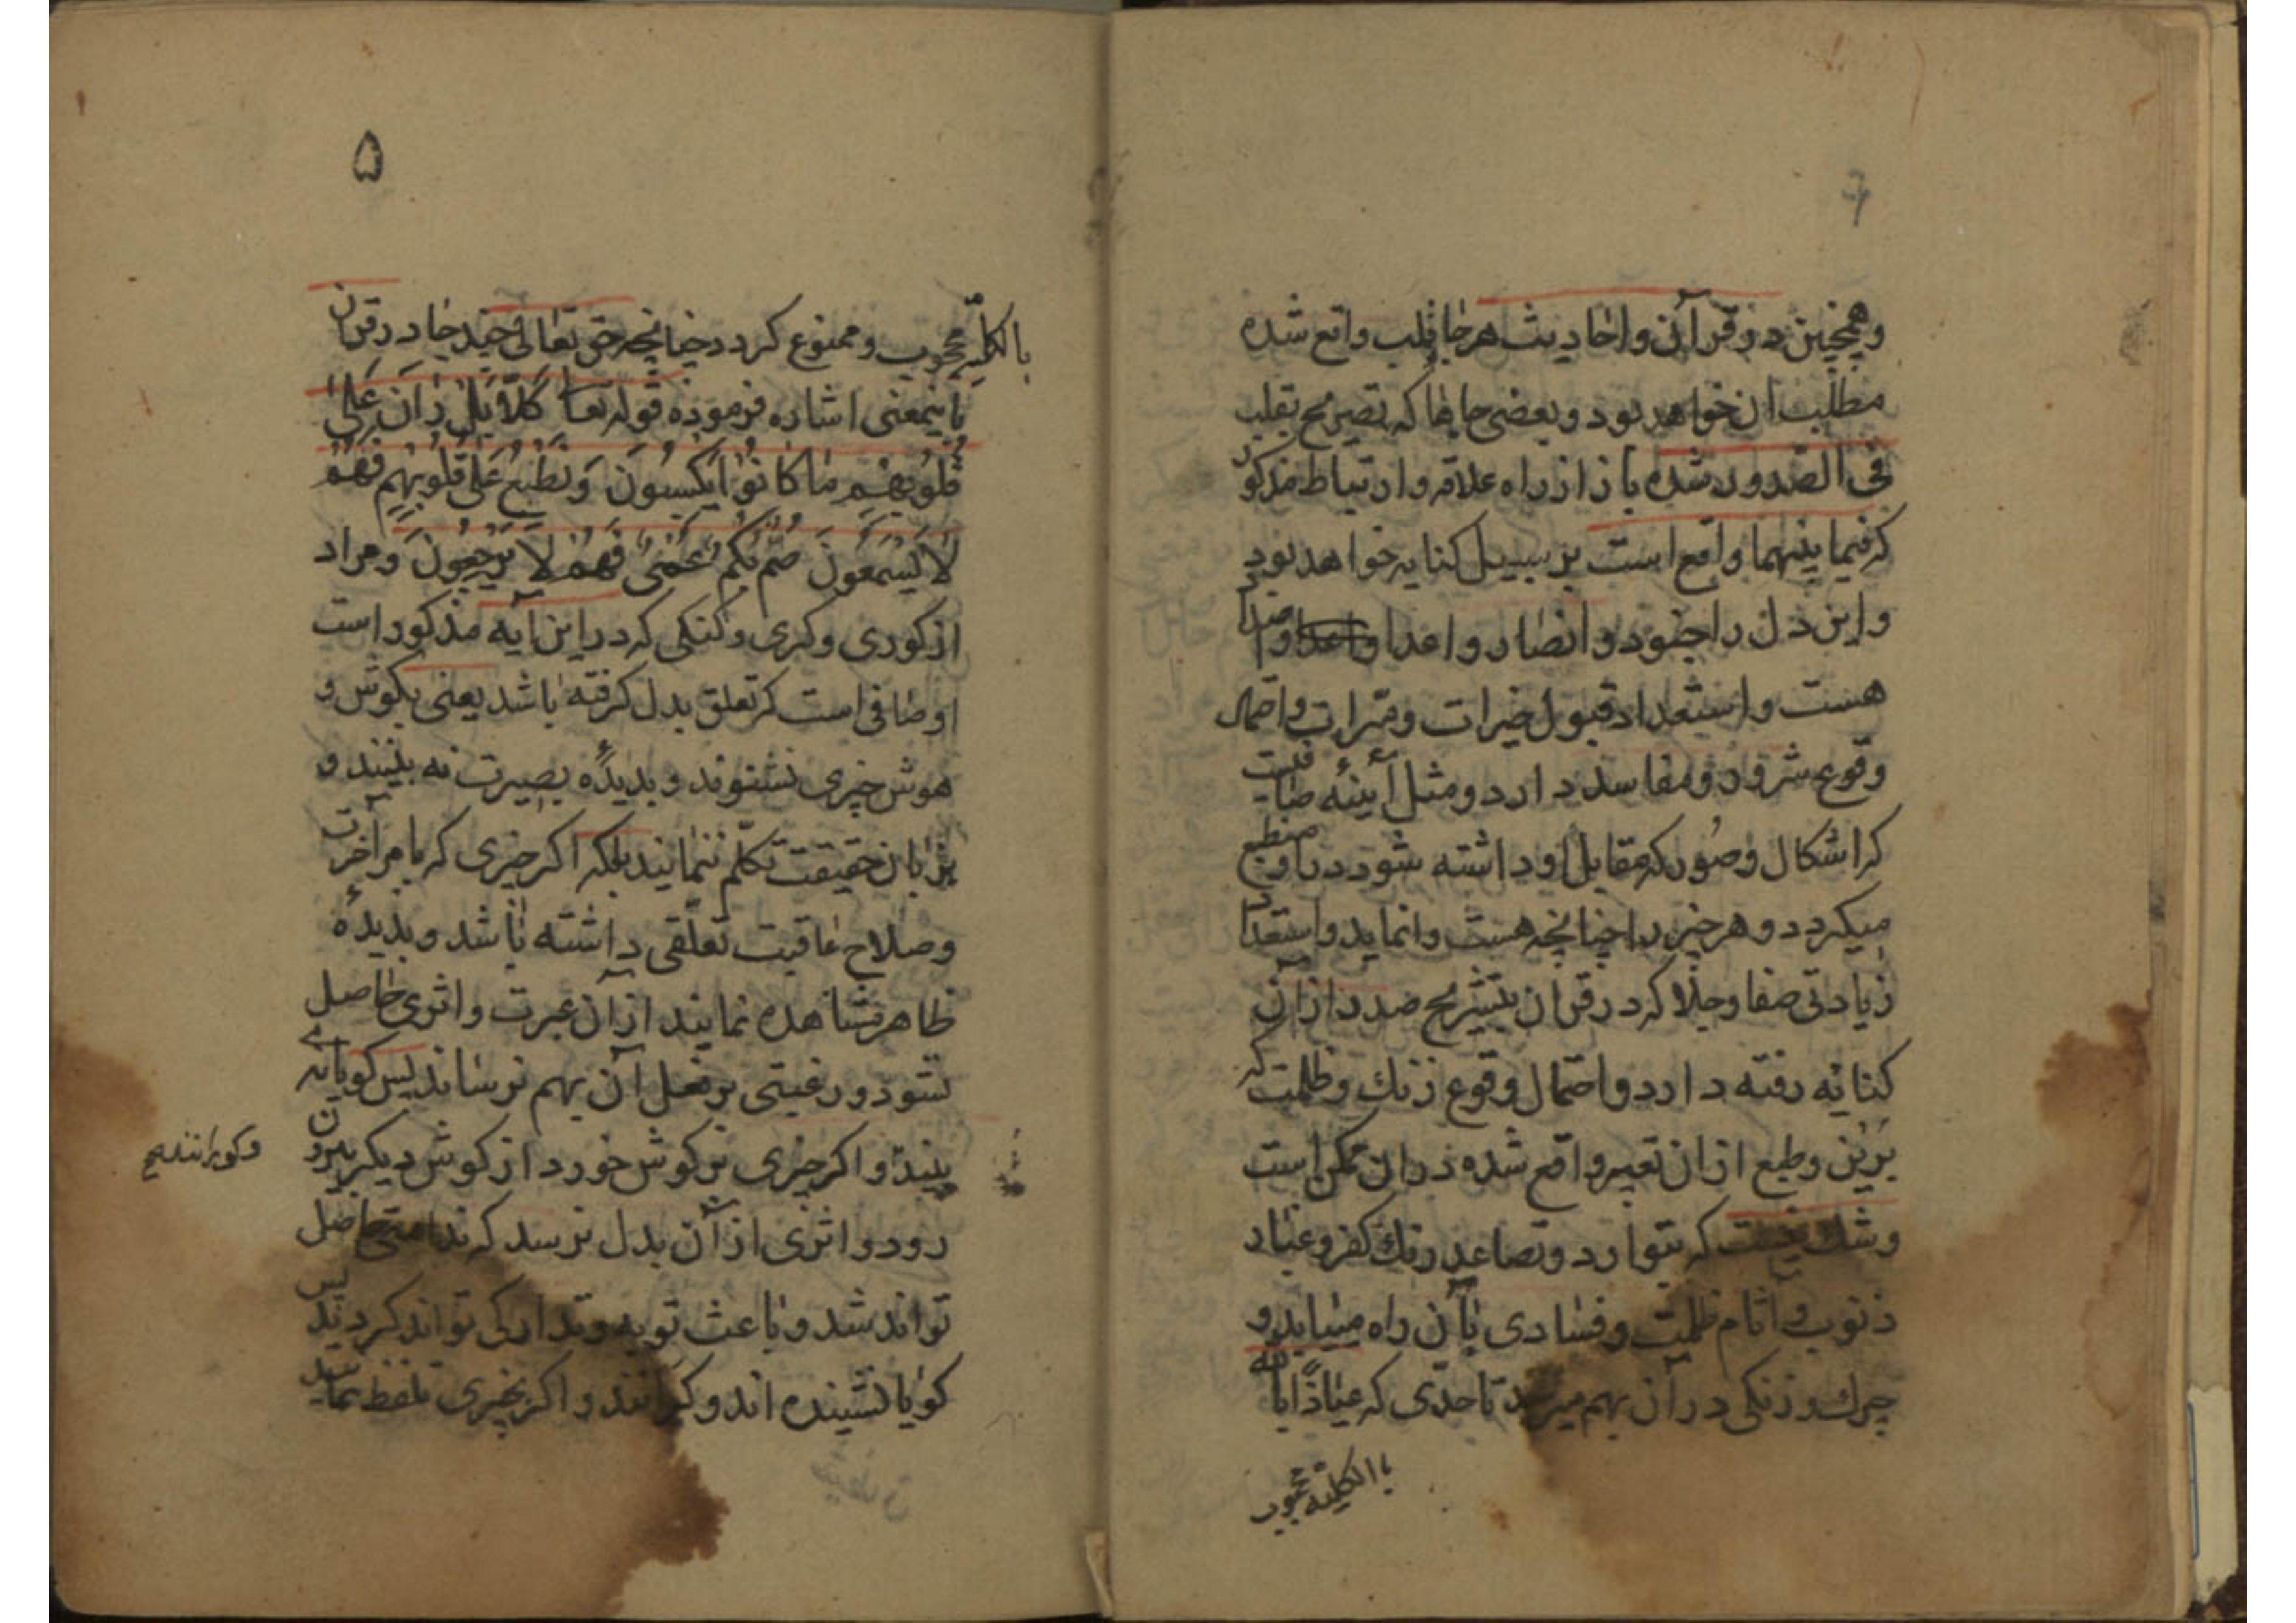 وهمچنین در قرآن واحادیث هرجا قلب واقع شده
مطلب ان خواهد بود وبعضی جایها که تصریح بقلب
فی الصدور شده باز از راه علاقه وارتباط مذکور
که فیما بینهما واقع است بر سبیل کنایه خواهد بود
واین دل را جنود وانصار واعدا واضداد
هست واستعداد قبول خیرات ومبرات واحتمال
وقوع شرور ومفاسد دارد ومثل آیینهٔ صافیست
که اشکال وصور که مقابل او داشته شود در او منطبع
میکردد وهر چیز را چنانچه هست وانماید واستعداد
زیادتی صفا وجلا که در قران بتشریح صدر از آن
کنایه رفته دارد واحتمال وقوع زنك وظلمت که
برین وطبع ازان تعبیر واقع شده دران ممکن است
وشك نیست که بتوارد وتصاعد زنك کفر وعناد
ذنوب وآثام ظلمت وفسادی بآن راه مییابد و
چرك وزنکی در آن بهم میرسد تا حدی که عیاذا بالله
بالکلیة محجوب
۵
بالکلیّة محجوب وممنوع کردد چنانچه حق تعالی چند جا در قران
باینمعنی اشاره فرموده قوله تعا كَلَّا بَلْ رَانَ عَلَىٰ
قُلُوبِهِمْ مَا كَانُوا يَكْسِبُونَ وَنَطْبَعُ عَلَىٰ قُلُوبِهِمْ فَهُمْ
لَا يَسْمَعُونَ صُمٌّ بُكْمٌ عُمْيٌ فَهُمْ لَا يَرْجِعُونَ ومراد
از کوری وکری وکنکی که در این آیه مذکور است
اوصافی است که تعلق بدل کرفته باشد یعنی بکوش و
هوش چیزی نشنوند وبدیدهٔ بصیرت نه بینند و
بزبان حقیقت تکلّم ننمایند بلکه اکر چیزی که بامر آخرت
وصلاح عاقبت تعلّقی داشته باشد وبدیدهٔ
ظاهر مشاهده نمایند از آن عبرت واثری حاصل
نشود ورغبتی بر فعل آن بهم نرساند پس کویا نمی
بینند واکر چیزی بر کوش خورد از کوش دیکر بیرون
رود واثری از آن بدل نرسد که ندامتی حاصل
تواند شد وباعث توبه وتدارکی تواند کردید پس
کویا نشنیده اند وکرانند واکر بخیری تلفظ نمایند
وکورانند صح